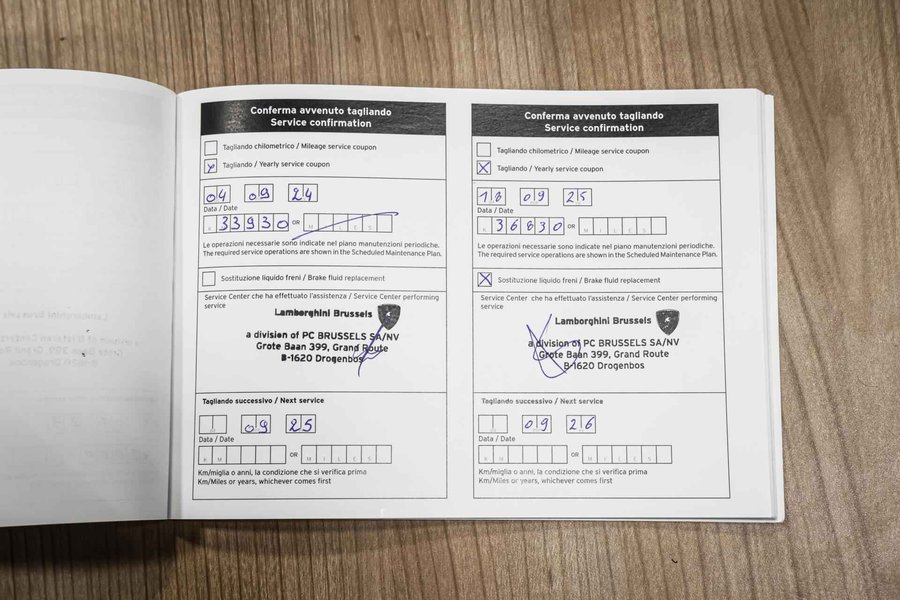 Conferma avvenuto tagliando
Service confirmation
Tagliando chilometrico / Mileage service coupon
Tagliando / Yearly service coupon
04 09 24
Data / Date
K 33930 OR MILES
Le operazioni necessarie sono indicate nel piano manutenzioni periodiche.
The required service operations are shown in the Scheduled Maintenance Plan.
Sostituzione liquido freni / Brake fluid replacement
Service Center che ha effettuato l'assistenza / Service Center performing
service
Lamborghini Brussels
a division of PC BRUSSELS SA/NV
Grote Baan 399, Grand Route
B-1620 Drogenbos
Tagliando successivo / Next service
09 25
Data / Date
KM OR MILES
Km/miglia o anni, la condizione che si verifica prima
Km/Miles or years, whichever comes first
Conferma avvenuto tagliando
Service confirmation
Tagliando chilometrico / Mileage service coupon
Tagliando / Yearly service coupon
18 09 25
Data / Date
K 36830 OR MILES
Le operazioni necessarie sono indicate nel piano manutenzioni periodiche.
The required service operations are shown in the Scheduled Maintenance Plan.
Sostituzione liquido freni / Brake fluid replacement
Service Center che ha effettuato l'assistenza / Service Center performing
service
Lamborghini Brussels
a division of PC BRUSSELS SA/NV
Grote Baan 399, Grand Route
B-1620 Drogenbos
Tagliando successivo / Next service
09 26
Data / Date
KM OR MILES
Km/miglia o anni, la condizione che si verifica prima
Km/Miles or years, whichever comes first